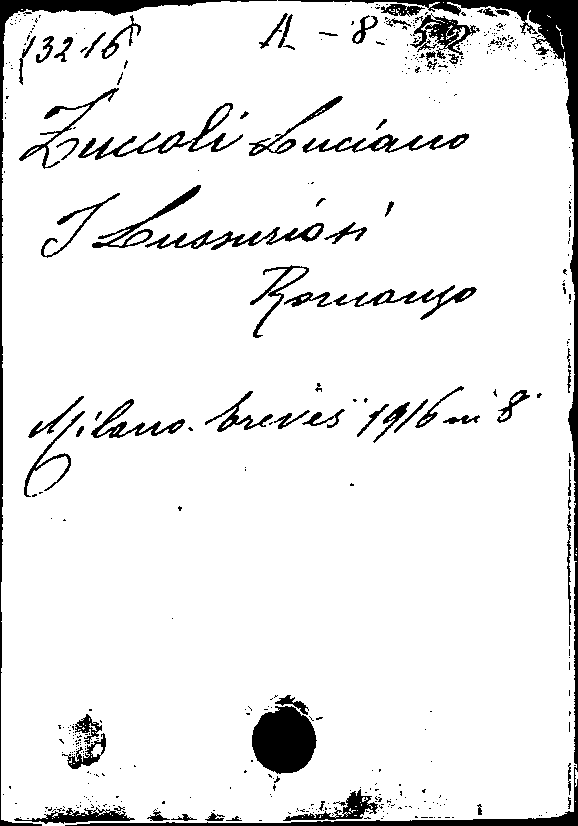 (3216) A - 8 - 52
Zuccoli Luciano
I Lussuriosi
Romanzo
Milano. Treves 1916 in 8º